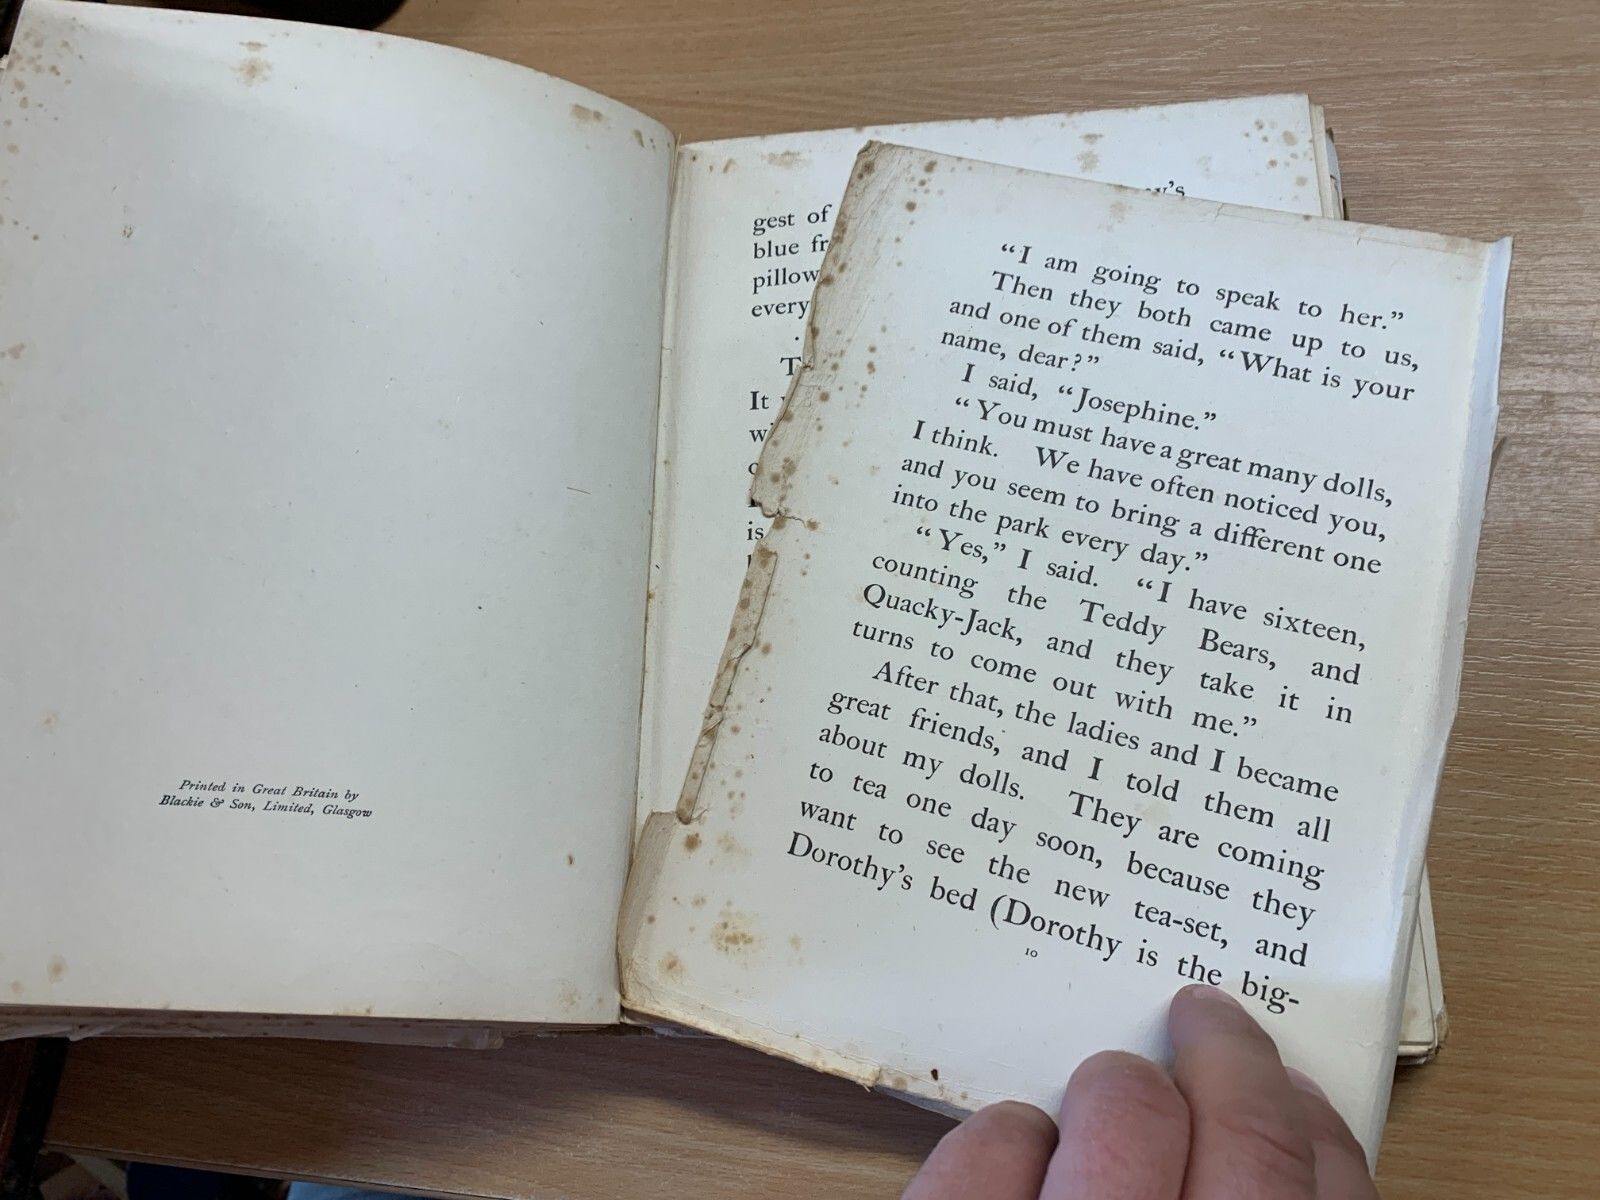 Printed in Great Britain by
Blackie & Son, Limited, Glasgow
gest of
blue fr
pillow
every
It
is
“I am going to speak to her.”
Then they both came up to us,
and one of them said, “What is your
name, dear?”
I said, “Josephine.”
“You must have a great many dolls,
I think. We have often noticed you,
and you seem to bring a different one
into the park every day.”
“Yes,” I said. “I have sixteen,
counting the Teddy Bears, and
Quacky-Jack, and they take it in
turns to come out with me.”
After that, the ladies and I became
great friends, and I told them all
about my dolls. They are coming
to tea one day soon, because they
want to see the new tea-set, and
Dorothy’s bed (Dorothy is the big-
10